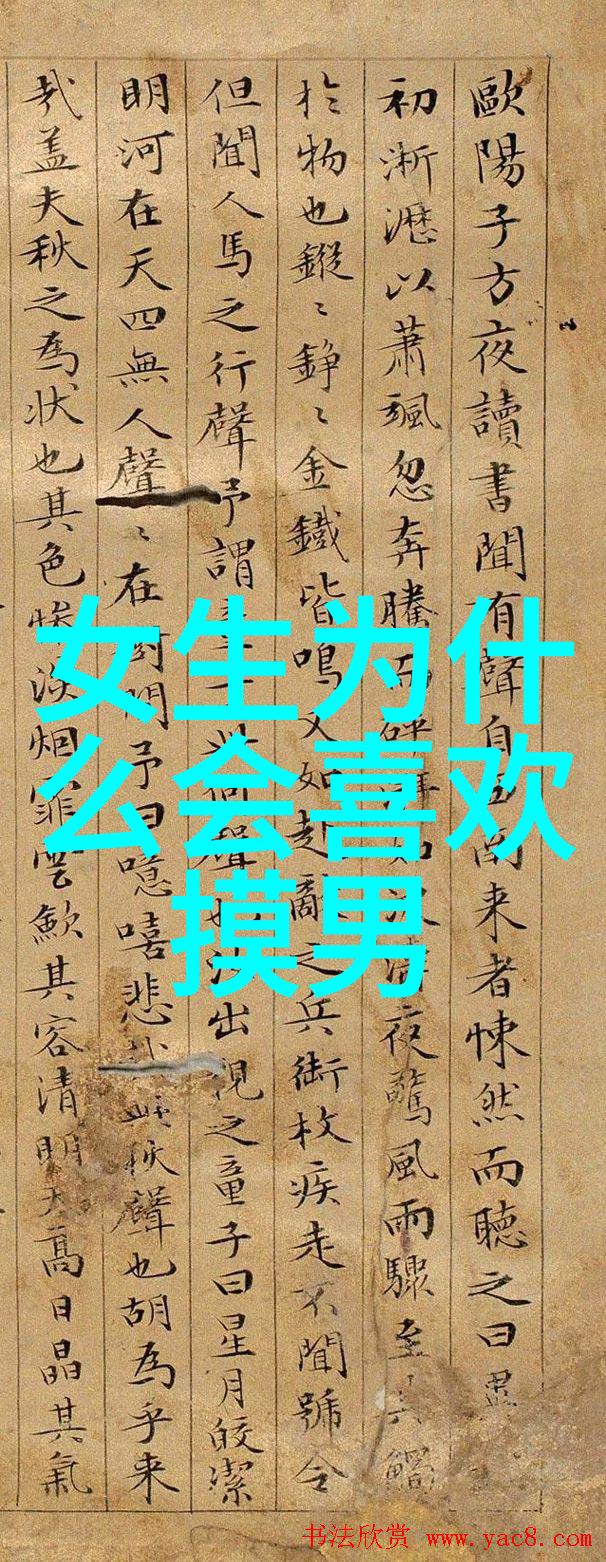 歐陽子方夜讀書聞有聲自南来者悚然而聽之曰
初淅瀝以蕭颯忽奔騰而如夜驚風雨驟至其觸
於物也鏦〻錚〻金鐵皆鳴又如赴敵之兵銜枚疾走不聞號令
但聞人馬之行聲予謂童何聲也汝出視之童子曰星月皎潔
明河在天四無人聲〻在樹間予曰噫嘻悲秋聲也胡為乎来
哉盖夫秋之為状也其色惨淡烟霏雲歛其容清明天高日晶其氣
女生为什
么会喜欢
摸男
书法欣赏 www.yac8.com